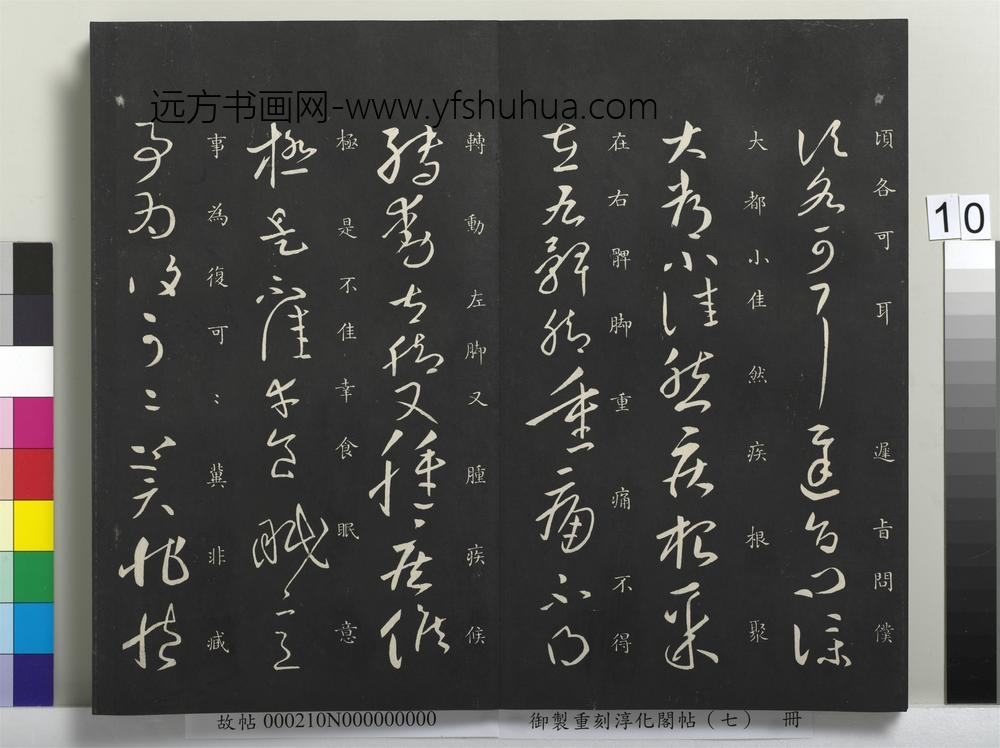 远方书画网-www.yfshuhua.com
頃各可耳 遲旨問僕
大都小佳然疾根聚
在右髀脚重痛不得
轉動左脚又腫疾候
極是不佳幸食眠意
事為復可：冀非臧
10
故帖 000210N000000000
御製重刻淳化閣帖（七） 冊